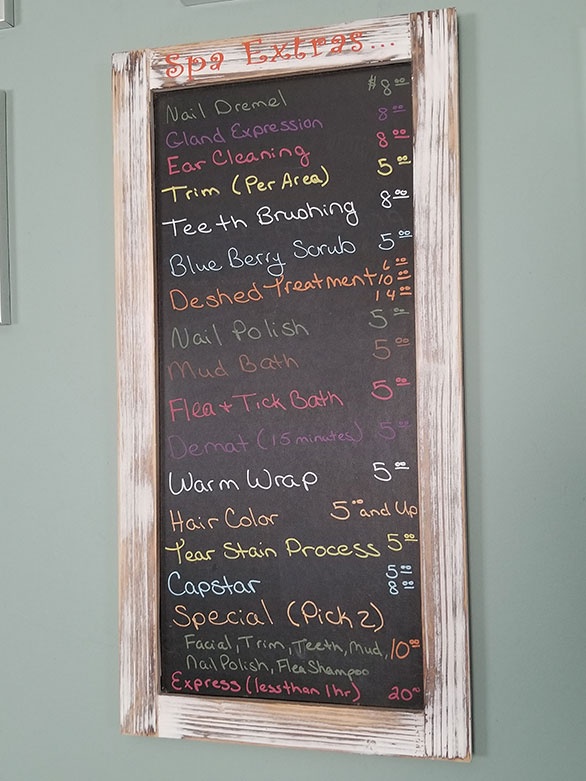 Spa Extras...
Nail Dremel $8.00
Gland Expression 8.00
Ear Cleaning 8.00
Trim (Per Area) 5.00
Teeth Brushing 8.00
Blue Berry Scrub 5.00
Deshed Treatment 6.00
10.00
14.00
Nail Polish 5.00
Mud Bath 5.00
Flea + Tick Bath 5.00
Demat (15 minutes) 5.00
Warm Wrap 5.00
Hair Color 5.00 and Up
Tear Stain Process 5.00
Capstar 5.00
8.00
Special (Pick 2)
Facial, Trim, Teeth, Mud, 10.00
Nail Polish, Flea Shampoo
Express (less than 1 hr) 20.00